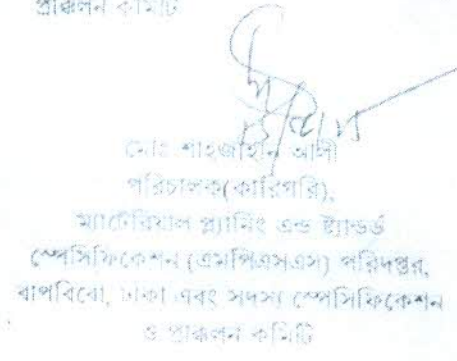 প্রাক্কলন কমিটি
মোঃ শাহজাহান আলী
পরিচালক(কারিগরি),
ম্যাটেরিয়াল প্ল্যানিং এন্ড ষ্ট্যান্ডার্ড
স্পেসিফিকেশন (এমপিএসএস) পরিদপ্তর,
বাপবিবো, ঢাকা এবং সদস্য স্পেসিফিকেশন
ও প্রাক্কলন কমিটি